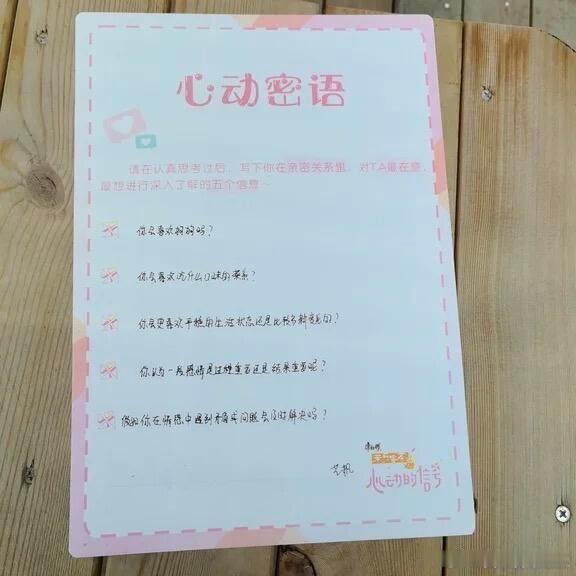 心动密语
请在认真思考过后，写下你在亲密关系里，对TA最在意，
最想进行深入了解的五个信息～
你会喜欢狗狗吗？
你会喜欢吃什么口味的菜系？
你会更喜欢平稳的生活状态还是比较多种变化的？
你认为一段感情是过程重要还是结果重要呢？
假如你在情感中遇到矛盾或问题会及时解决吗？
艺枫
心动的信号